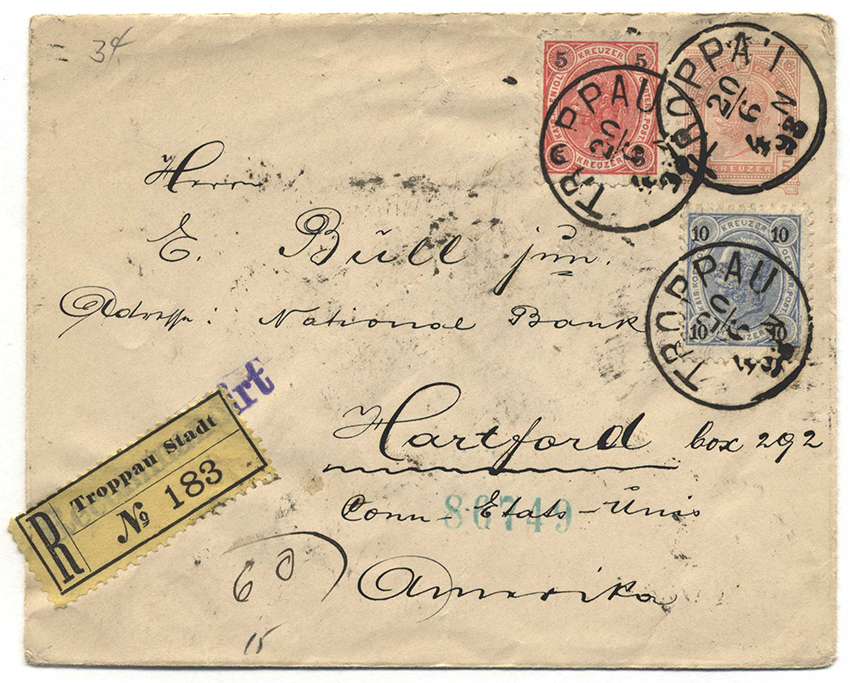 34
5 KREUZER 5
TROPPAU
20/6
98
TROPPAU
20/6
98
KREUZER
10 KREUZER 10
10 10
TROPPAU
Herrn
E. Büll jun.
Adresse: National Bank
Hartford box 292
Conn - Etats-Ùnis
Amerika
86749
R
Troppau Stadt
№ 183
60
15